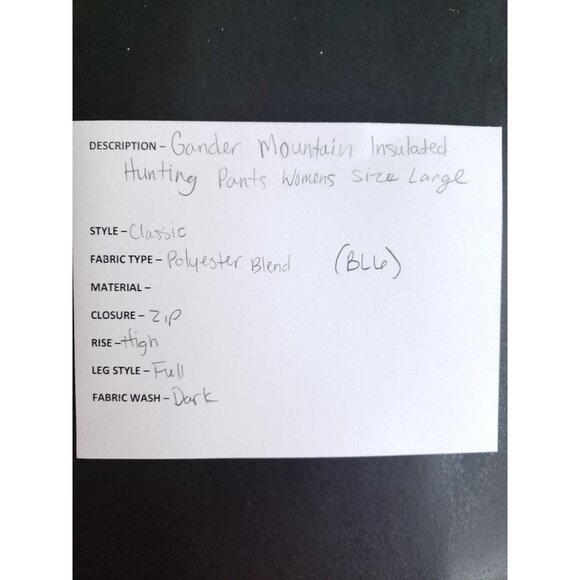 DESCRIPTION – Gander Mountain Insulated
Hunting Pants Womens Size Large
STYLE – Classic
FABRIC TYPE – Polyester Blend (BL6)
MATERIAL –
CLOSURE – Zip
RISE – High
LEG STYLE – Full
FABRIC WASH – Dark